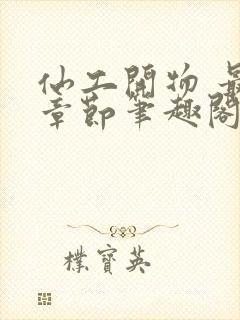 仙工開物 最
章節筆趣閣
樸寶英